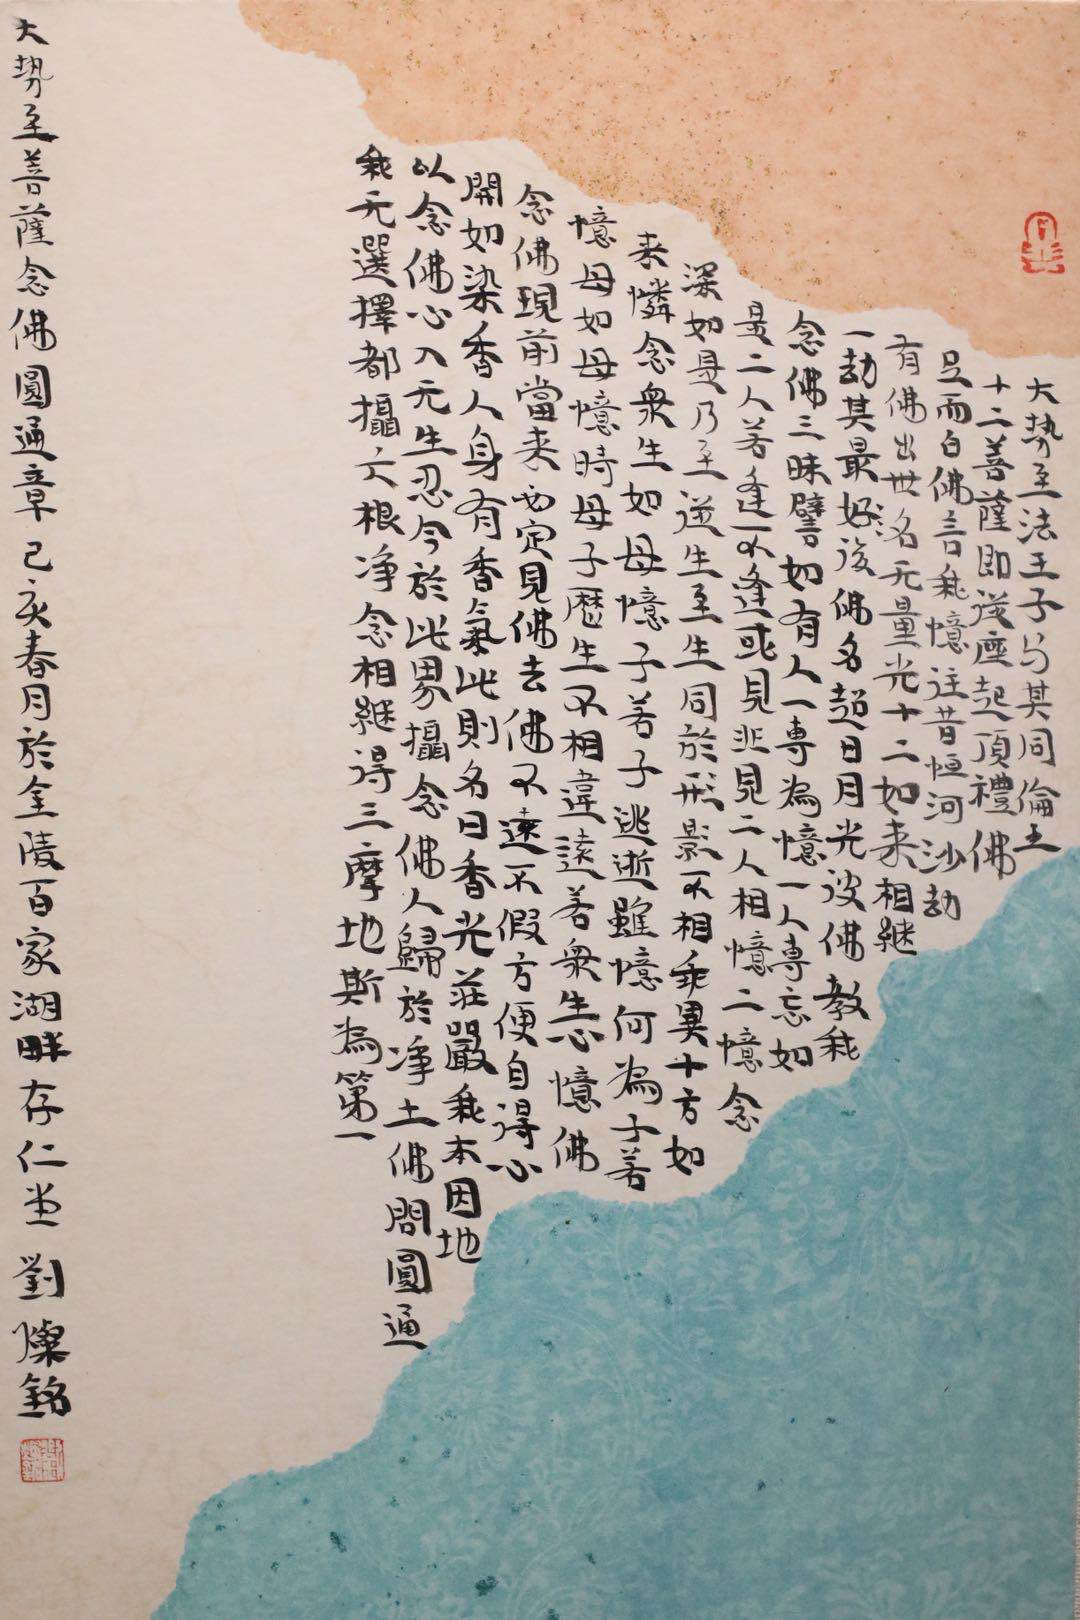 大勢至法王子与其同倫五
十二菩薩即從座起頂禮佛
足而白佛言我憶往昔恒河沙劫
有佛出世名无量光十二如来相継
一劫其最後佛名超日月光彼佛教我
念佛三昧譬如有人一専為憶一人専忘如
是二人若逢不逢或見非見二人相憶二憶念
深如是乃至従生至生同於形影不相乖異十方如
来憐念衆生如母憶子若子逃逝雖憶何為子若
憶母如母憶時母子歴生不相違遠若衆生心憶佛
念佛現前當来必定見佛去佛不遠不假方便自得心
開如染香人身有香氣此則名曰香光莊嚴我本因地
以念佛心入无生忍今於此界攝念佛人歸於净土佛問圓通
我无選擇都攝六根净念相継得三摩地斯為第一
大勢至菩薩念佛圓通章 己亥春月於金陵百家湖畔存仁堂 劉燦銘